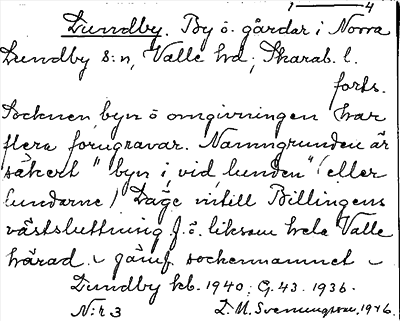 1 — 4
Lundby. By ö. gårdar i Norra
Lundby s:n, Valle hd, Skarab. l.
forts.
Socknen, byn ö omgivningen har
flera forngravar. Namngrunden är
säkert "byn i, vid lunden" (eller
lundarne) Läge intill Billingens
västsluttning f.ö. liksom hela Valle
härad. – jämf sockennamnet –
Lundby kb. 1940; G. 43. 1936.
N:r 3 L. M. Svenungsson, 1946.